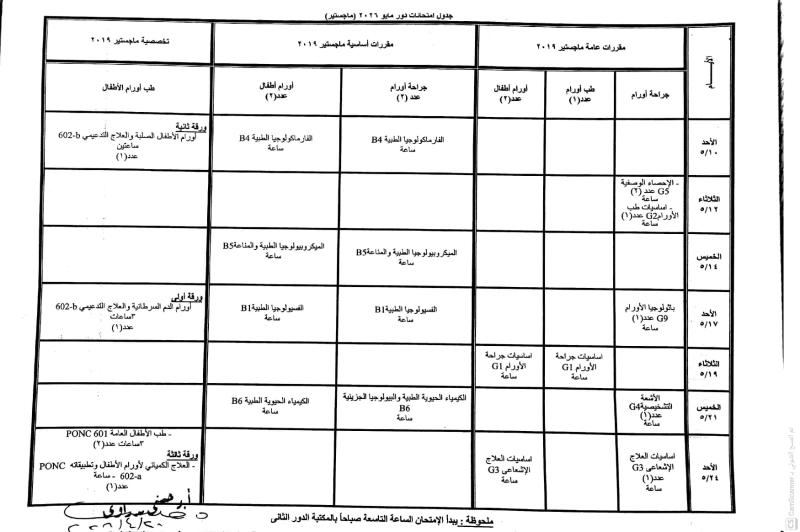 جدول امتحانات دور مايو ٢٠٢٦ (ماجستير)
مقررات عامة ماجستير ٢٠١٩
مقررات أساسية ماجستير ٢٠١٩
تخصصية ماجستير ٢٠١٩
جراحة أورام
طب أورام
عدد(١)
أورام أطفال
عدد(٢)
جراحة أورام
عدد (٢)
أورام أطفال
عدد(٢)
طب أورام الأطفال
الأحد
٥/١٠
الفارماكولوجيا الطبية B4
ساعة
الفارماكولوجيا الطبية B4
ساعة
ورقة ثانية
أورام الأطفال الصلبة والعلاج التدعيمي 602-b
ساعتين
عدد(١)
الثلاثاء
٥/١٢
- الإحصاء الوصفية
G5 عدد (٢)
ساعة
- اساسيات طب
الأورامG2 عدد(١)
ساعة
الخميس
٥/١٤
الميكروبيولوجيا الطبية والمناعةB5
ساعة
الميكروبيولوجيا الطبية والمناعةB5
ساعة
الأحد
٥/١٧
باثولوجيا الأورام
G9 عدد(١)
ساعة
الفسيولوجيا الطبيةB1
ساعة
الفسيولوجيا الطبيةB1
ساعة
ورقة أولى
أورام الدم السرطانية والعلاج التدعيمي 602-b
٣ساعات
عدد(١)
الثلاثاء
٥/١٩
اساسيات جراحة
الأورام G1
ساعة
اساسيات جراحة
الأورام G1
ساعة
الخميس
٥/٢١
الأشعة
التشخيصيةG4
عدد(١)
ساعة
الكيمياء الحيوية الطبية والبيولوجيا الجزيئية
B6
ساعة
الكيمياء الحيوية الطبية B6
ساعة
الأحد
٥/٢٤
اساسيات العلاج
الإشعاعى G3
عدد(١)
ساعة
اساسيات العلاج
الإشعاعى G3
ساعة
- طب الأطفال العامة PONC 601
٣ساعات عدد(٢)
ورقة ثالثة
- العلاج الكميائي لأورام الأطفال وتطبيقاته PONC
602-a - ساعة
عدد(١)
ملحوظة : يبدأ الإمتحان الساعة التاسعة صباحاً بالمكتبة الدور الثانى
CamScanner